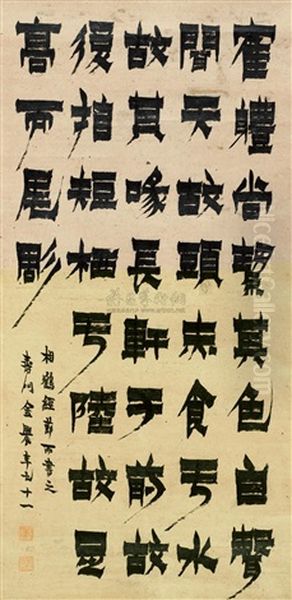 隺體尚潔其色白聲
聞天故頭朱食亏水
故其喙長軒于前故
後指短栖亏陸故足
高而尾彫
相鶴經節而書之
壽門金農年十一